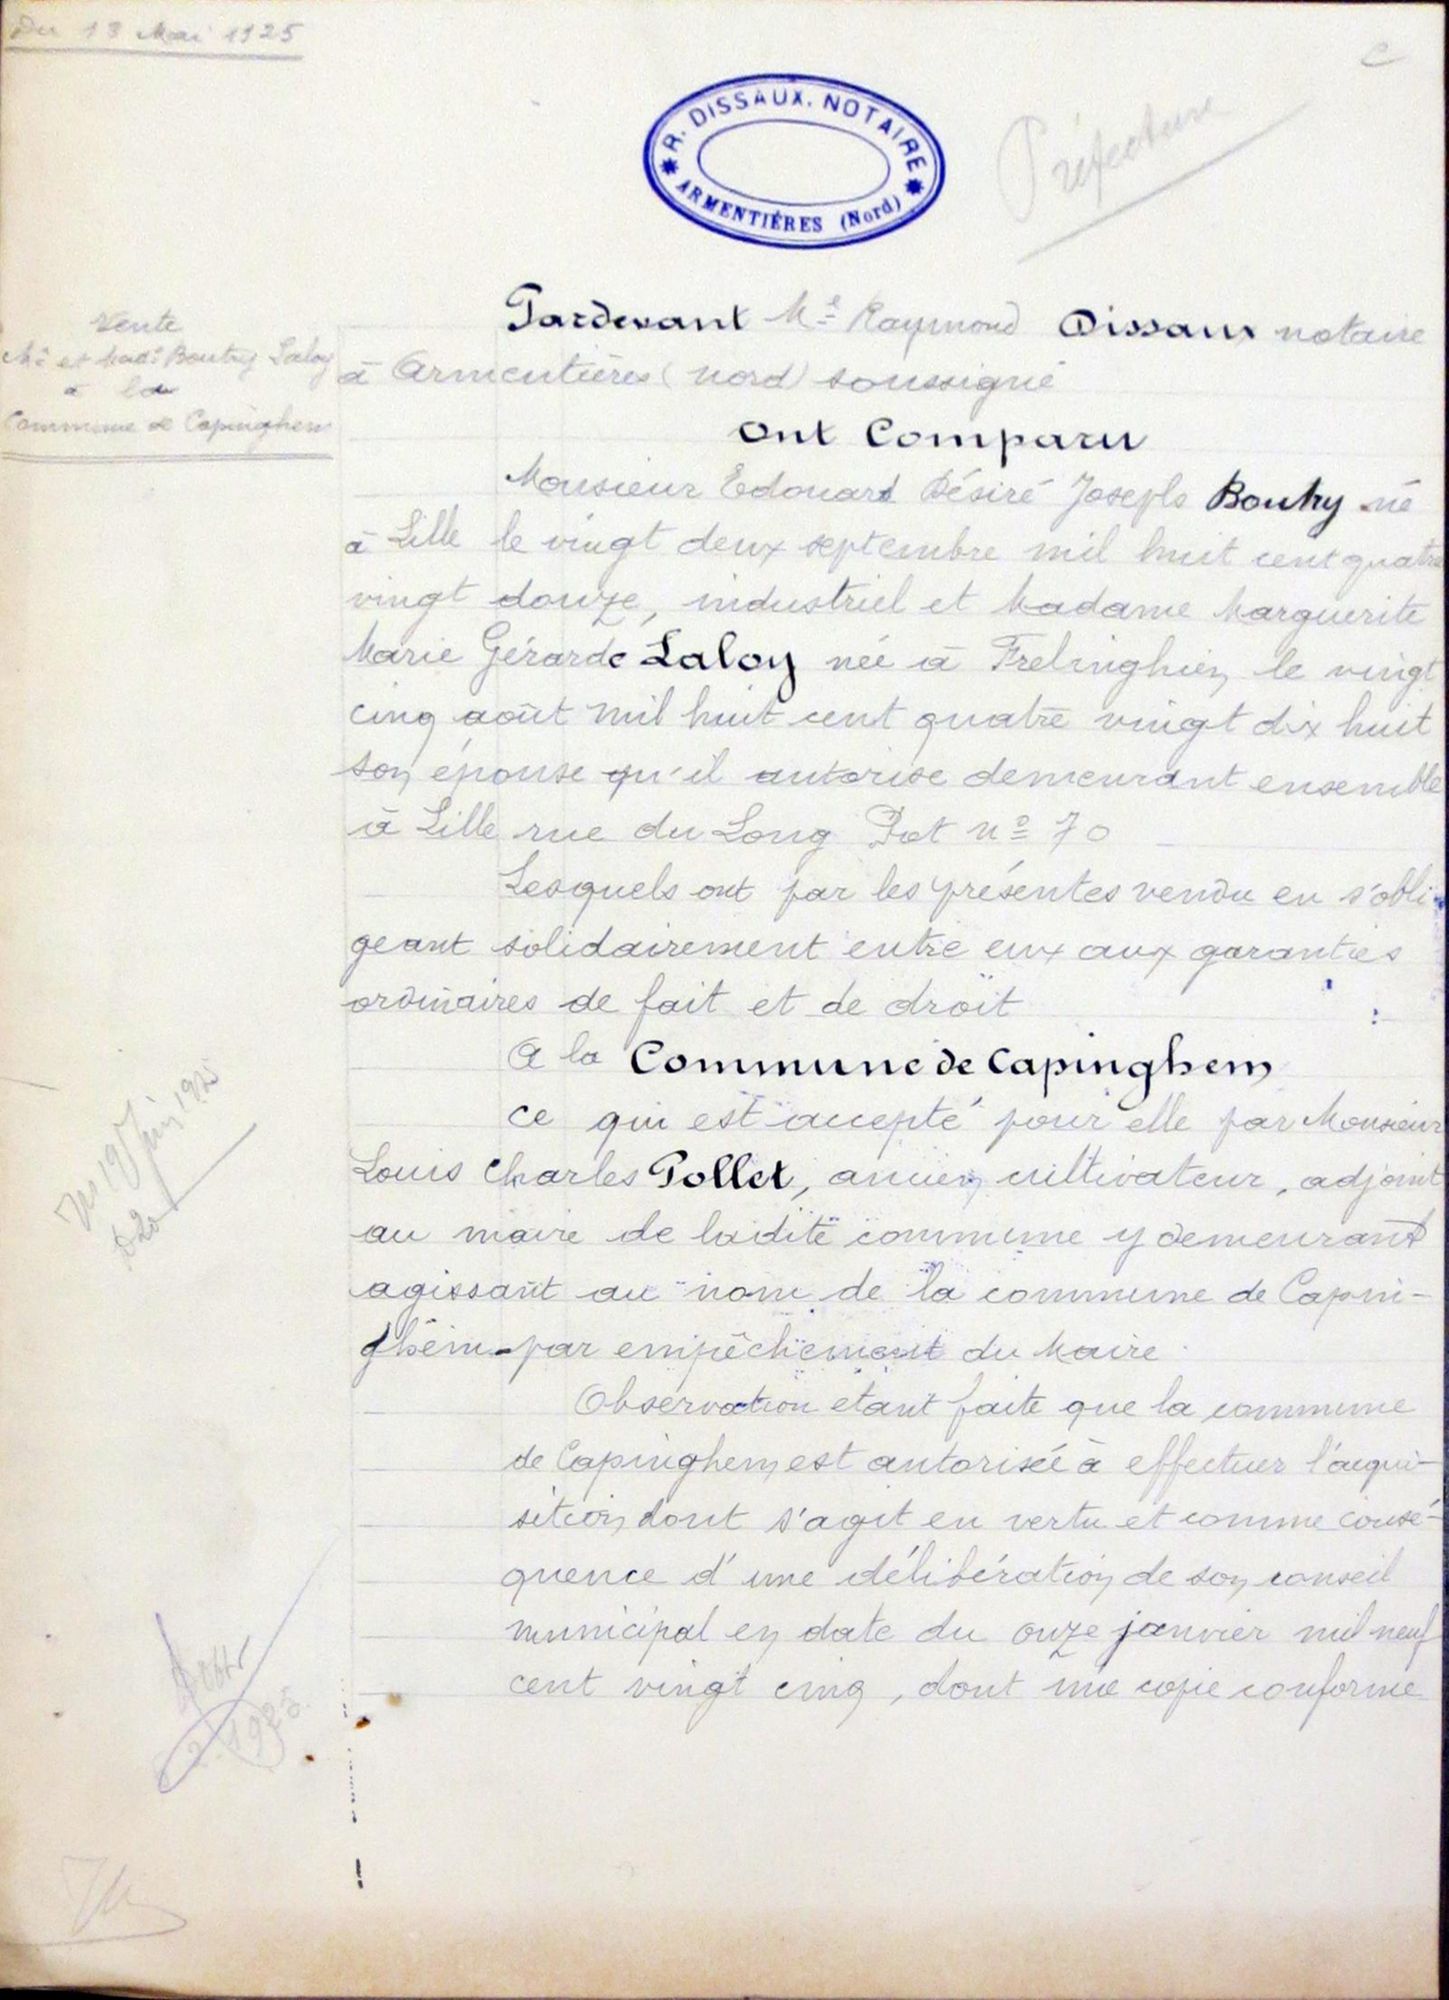 Du 18 Mai 1925
C
R. DISSAUX. NOTAIRE
ARMENTIÈRES (Nord)
Préfecture
Vente
Mr et Made Boutry Laloy
à la
Commune de Capinghem
Pardevant Me Raymond Dissaux notaire
à Armentières (Nord) soussigné
Ont Comparu
Monsieur Edouard Désiré Joseph Boutry né
à Lille le vingt deux septembre mil huit cent quatre
vingt douze, industriel et Madame Marguerite
Marie Gérarde Laloy née à Frelinghien le vingt
cinq août mil huit cent quatre vingt dix huit
son épouse qu'il autorise demeurant ensemble
à Lille rue du Long Pot no 70
Lesquels ont par les présentes vendu en s'obli-
geant solidairement entre eux aux garanties
ordinaires de fait et de droit
A la Commune de Capinghem
ce qui est accepté pour elle par Monsieur
Louis Charles Pollet, ancien cultivateur, adjoint
au maire de ladite commune y demeurant
agissant au nom de la commune de Capin-
ghem par empêchement du Maire.
Observation étant faite que la commune
de Capinghem est autorisée à effectuer l'acqui-
sition dont s'agit en vertu et comme consé-
quence d'une délibération de son conseil
municipal en date du onze janvier mil neuf
cent vingt cinq, dont une copie conforme
19 Juin 1925
1925